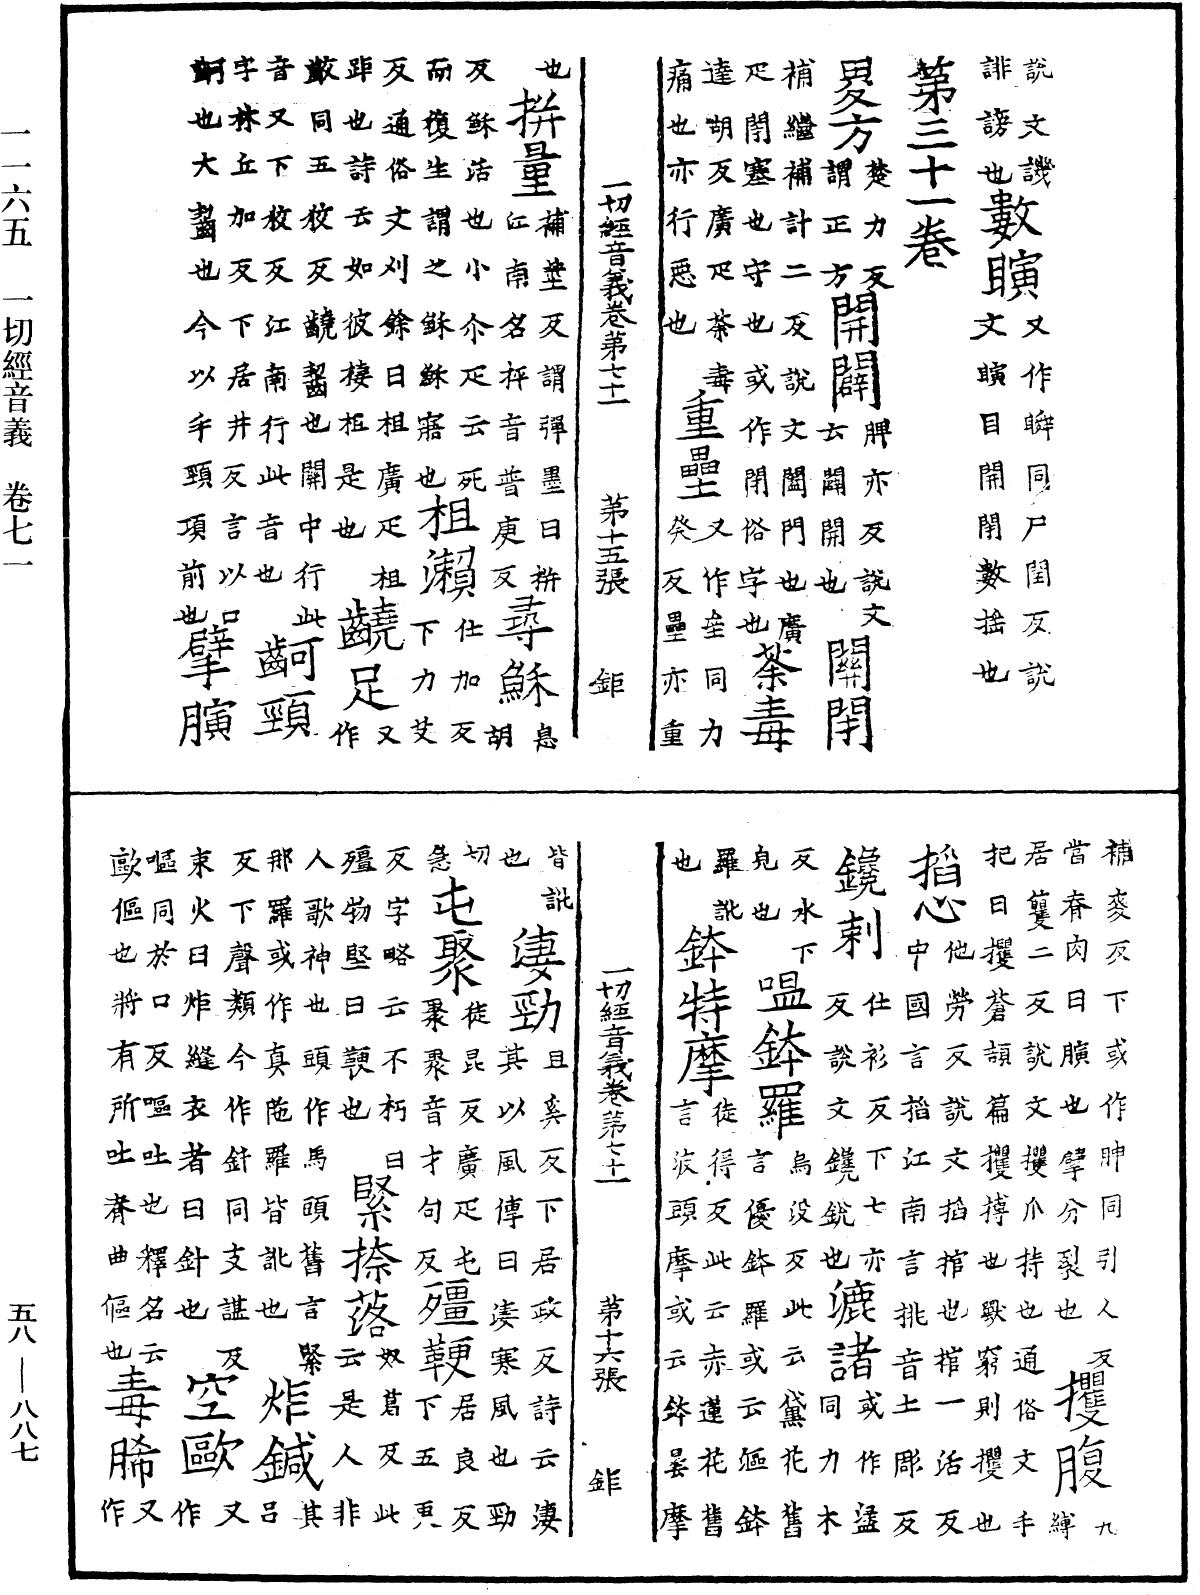 說文譏
誹謗也數瞚又作瞬同尸閏反說
文瞚目開閉數搖也
第三十一卷
畟方楚力反謂正方開闢脾亦反說文云闢開也關閉
補繼補計二反說文闔門也廣
疋閉塞也守也或作閇俗字也荼毒
達胡反廣疋荼毒
痛也亦行惡也重壘又作垒同力癸反壘亦重
一切經音義卷第七十一 第十五張 鉅
也拼量補莖反謂彈墨曰拼江南名抨音普庚反尋穌息胡
反穌活也小尒疋云死
而復生謂之穌穌寤也柤瀨仕加反下力艾
反通俗文刈餘曰柤廣疋柤
距也詩云如彼棲柤是也齩足又作
齩同五狡反齩齧也關中行此
音又下狡反江南行此音也齣頸
字林丘加反下居井反言以口
齣也大齧也今以手頸項前也擘䐿
補麥反下或作胂同引人反
當脊肉曰䐿也擘分裂也攫腹九縛
居籰二反說文攫爪持也通俗文手
把曰攫蒼頡篇攫搏也獸窮則攫也
搯心他勞反說文搯捾也捾一活反
中國言搯江南言挑音土彫反
鑱刺仕衫反下七亦反說文鑱銳也漉諸或作盝同力木
反水下皃也嗢鉢羅烏没反此云黛花舊言優鉢羅或云漚鉢
羅訛也鉢特摩徒得反此云赤蓮花舊言波頭摩或云鉢曇摩
一切經音義卷第七十一 第十六張 鉅
皆訛也淒勁且奚反下居政反詩云淒其以風傳曰淒寒風也勁
切急屯聚徒昆反廣疋屯聚聚音才句反殭鞕下居良反下五更
反字略云不朽曰殭物堅曰鞕也緊捺落奴葛反此云是人非
人歌神也頭作馬頭舊言緊
那羅或作真陁羅皆訛也炸鍼其呂
反下聲類今作針同支諶反
束火曰炬縫衣者曰針也空歐又作
嘔同於口反嘔吐也釋名云
歐傴也將有所吐脊曲傴也毒脪又作
一一六五 一切經音義 卷七一
五八—八八七